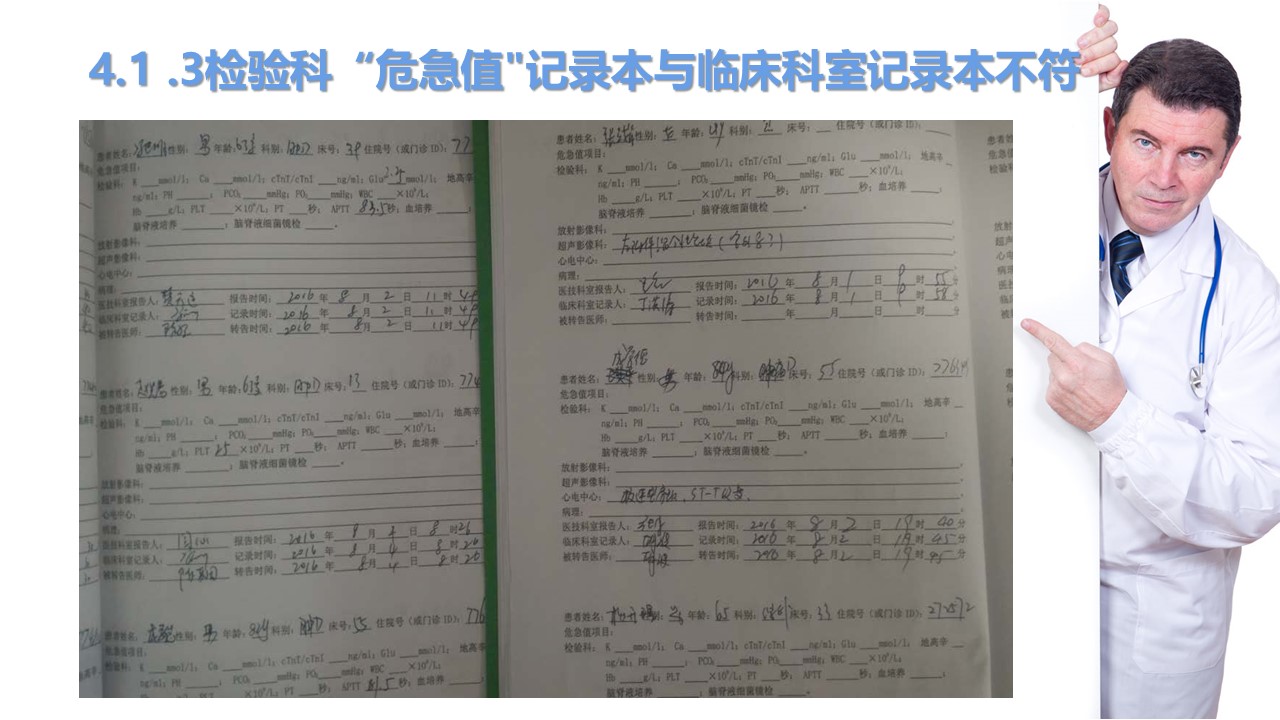 4.1 .3检验科“危急值"记录本与临床科室记录本不符
患者姓名: 性别: 男 年龄: 科别: 床号: 39 住院号(或门诊ID): 77
危急值项目:
检验科: K ____mmol/l; Ca ____mmol/l; cTnT/cTnI ____ng/ml; Glu 2.4 mmol/l; 地高辛
ng/ml; PH ____; PCO₂ ____mmHg; PO₂ ____mmHg; WBC ____×10⁹/L;
Hb ____g/L; PLT ____×10⁹/L; PT ____秒; APTT 83.5 秒; 血培养 ____;
脑脊液培养 ____; 脑脊液细菌镜检 ____。
放射影像科:
超声影像科:
心电中心:
病理:
医技科室报告人: 报告时间: 2016 年 8 月 2 日 11 时 49
临床科室记录人: 记录时间: 2016 年 8 月 2 日 11 时 49
被转告医师: 转告时间: 2016 年 8 月 2 日 11 时 49
患者姓名: 性别: 男 年龄: 科别: 床号: 13 住院号(或门诊ID): 774
危急值项目:
检验科: K ____mmol/l; Ca ____mmol/l; cTnT/cTnI ____ng/ml; Glu ____mmol/l; 地高辛
ng/ml; PH ____; PCO₂ ____mmHg; PO₂ ____mmHg; WBC ____×10⁹/L;
Hb ____g/L; PLT 25 ×10⁹/L; PT ____秒; APTT ____秒; 血培养 ____;
脑脊液培养 ____; 脑脊液细菌镜检 ____。
放射影像科:
超声影像科:
心电中心:
病理:
医技科室报告人: 报告时间: 2016 年 8 月 4 日 8 时
临床科室记录人: 记录时间: 2016 年 8 月 4 日 8 时 20
被转告医师: 转告时间: 2016 年 8 月 4 日 8 时 20
患者姓名: 性别: 男 年龄: 84y 科别: 床号: 55 住院号(或门诊ID): 776
危急值项目:
检验科: K ____mmol/l; Ca ____mmol/l; cTnT/cTnI ____ng/ml; Glu ____mmol/l; 地高辛
ng/ml; PH ____; PCO₂ ____mmHg; PO₂ ____mmHg; WBC ____×10⁹/L;
Hb ____g/L; PLT ____×10⁹/L; PT ____秒; APTT 81.5 秒; 血培养
患者姓名: 性别: 年龄: 49 科别: 床号: __ 住院号(或门诊ID): ____
危急值项目:
检验科: K ____mmol/l; Ca ____mmol/l; cTnT/cTnI ____ng/ml; Glu ____mmol/l; 地高辛
ng/ml; PH ____; PCO₂ ____mmHg; PO₂ ____mmHg; WBC ____×10⁹/L;
Hb ____g/L; PLT ____×10⁹/L; PT ____秒; APTT ____秒; 血培养 ____;
脑脊液培养 ____; 脑脊液细菌镜检 ____。
放射影像科:
超声影像科:
心电中心:
病理:
医技科室报告人: 报告时间: 2016 年 8 月 1 日 9 时 55 分
临床科室记录人: 记录时间: 2016 年 8 月 1 日 9 时 58 分
被转告医师: 转告时间: ____年 ____月 ____日 ____时 ____分
患者姓名: 性别: 年龄: 84y 科别: 床号: 55 住院号(或门诊ID):
危急值项目:
检验科: K ____mmol/l; Ca ____mmol/l; cTnT/cTnI ____ng/ml; Glu ____mmol/l; 地高辛
ng/ml; PH ____; PCO₂ ____mmHg; PO₂ ____mmHg; WBC ____×10⁹/L;
Hb ____g/L; PLT ____×10⁹/L; PT ____秒; APTT ____秒; 血培养 ____;
脑脊液培养 ____; 脑脊液细菌镜检 ____。
放射影像科:
超声影像科:
心电中心: ST-T改变.
病理:
医技科室报告人: 报告时间: 2016 年 8 月 2 日 19 时 40 分
临床科室记录人: 记录时间: 2016 年 8 月 2 日 19 时 45 分
被转告医师: 转告时间: 2016 年 8 月 2 日 19 时 45 分
患者姓名: 性别: 年龄: 65 科别: 床号: 33 住院号(或门诊ID): 272572
危急值项目:
检验科: K ____mmol/l; Ca ____mmol/l; cTnT/cTnI ____ng/ml; Glu ____mmol/l; 地高辛
ng/ml; PH ____; PCO₂ ____mmHg; PO₂ ____mmHg; WBC ____×10⁹/L;
Hb ____g/L; PLT ____×10⁹/L; PT ____秒; APTT ____秒; 血培养 ____;
脑脊液培养 ____; 脑脊液细菌镜检 ____。